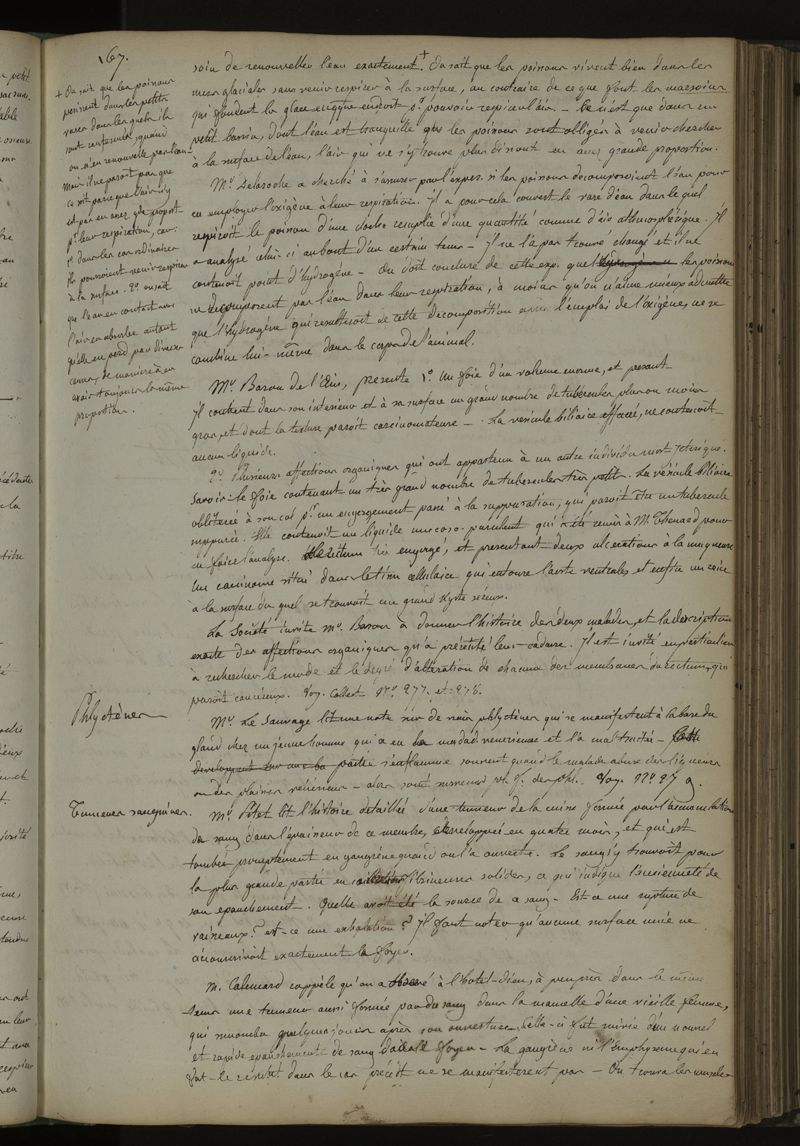 167.
+ On sait que les poissons
périssent dans les petits
vases dans lesquels ils
sont renfermés, quand
on n'en renouvelle pas l'eau
mais il ne paroit pas que
ce soit parce que l'air n'y
est pas en assez gde proport.
pr leur respiration, car:
1° dans les cas ordinaires
ils pourroient venir respirer
à la surface. 2° on sait
que l'eau en contact avec
l'air en absorbe autant
qu'elle en perd par diverses
causes, de manière à en
avoir toujours la même
proportion.
soin de renouveller l'eau exactement. + On sait que les poissons vivent bien dans les
mers glaciales sans venir respirer à la surface, au contraire de ce que font les marsouins
qui fendent la glace en qque endroit pr pouvoir respirer l'air. - Ce n'est que dans un
petit bassin, dont l'eau est tranquille que les poissons sont obligés à venir chercher
à la surface de l'eau, l'air qui ne s'y trouve plus dissout en assez grande proportion.
Mr. Delaroche a cherché à s'assurer par l'expce. si les poissons décomposoient l'eau pour
en employer l'oxigène à leur respiration. Il a pour cela couvert le vase d'eau dans lequel
respiroit le poisson d'une cloche remplie d'une quantité connue d'air athmosphérique. Il
a analysé celui-ci au bout d'un certain tems - Il ne l'a pas trouvé changé et il ne
contenoit point d'hydrogène - On doit conclure de cette exp. que les poissons
ne décomposent pas l'eau dans leur respiration, à moins qu'on n'aime mieux admettre
que l'hydrogène qui resulteroit de cette décomposition après l'emploi de l'oxigène, ne se
combine lui-même dans le corps de l'animal.
Mr. Baron de l'Ain, presente 1° un foie d'un volume enorme, et pesant
Il contient dans son interieur et à sa surface un grand nombre de tubercules plus ou moins
gros, et dont la texture paroit carcinomateuse -. La vesicule biliaire effacée, ne contenoit
aucun liquide.
2° Plusieurs affections organiques qui ont appartenu à un autre individu mort ictérique.
Savoir: le foie contenant un très grand nombre de tubercules très petits. La vésicule biliaire
oblitérée à son col pr un engorgement passé à la suppuration, qui paroit être un tubercule
suppuré. Elle contenoit un liquide mucoso-purulent qui a été remis à M. Thenard pour
en faire l'analyse. Le rectum très engorgé, et presentant deux ulcerations à la muqueuse
Un carcinome situé dans le tissu cellulaire qui entoure l'aorte ventrales et enfin un rein
à la surface du quel se trouvoit un grand kyste séreux.
La Société invite Mr. Baron à donner l'histoire des deux malades, et la description
exacte des affections organiques qu'a présenté leur cadavre. Il est invité en particulier
à rechercher le mode et le degré d'altération de chacune des membranes du rectum, qui
paroit cancéreux. Voy. Collect. No. 277. et 278.
Phlyctènes
Mr. Le Sauvage lit une note sur de vrais phlyctènes qui se manifestent à la base du
gland chez un jeune homme qui a eu la maladie venerienne et l'a mal traitée -
partie s'enflamme souvent quand le malade abuse des liqueurs
ou des plaisirs vénériens - alors sont survenues des phl. Voy. No. 279.
Tumeurs sanguines.
Mr. Petet lit l'histoire detaillée d'une tumeur de la cuisse formée par l'accumulation
de sang dans l'épaisseur de ce membre, développée en quatre mois, et qui est
tombée promptement en gangrène quand on l'a ouverte. Le sang s'y trouvoit pour
la plus grande partie en fibrineuses solides, ce qui indique l'ancienneté de
son epanchement. Quelle avoit été la source de ce sang - Est ce une rupture de
vaisseaux? est-ce une exhalation? Il faut noter qu'aucune surface unie ne
circonscrivoit exactement le foyer.
M. Calemard rappèle qu'on a observé à l'hotel-dieu, à peu près dans le même
tems une tumeur aussi formée par du sang dans la mamelle d'une vieille femme,
qui succomba quelques jours après son ouverture. Celle-ci fut suivie d'un nouvel
et rapide epanchement de sang dans le foyer - La gangrène ni l'emphysème qui en
fut le résultat dans le cas précédt ne se manifesterent pas - On trouva les muscles